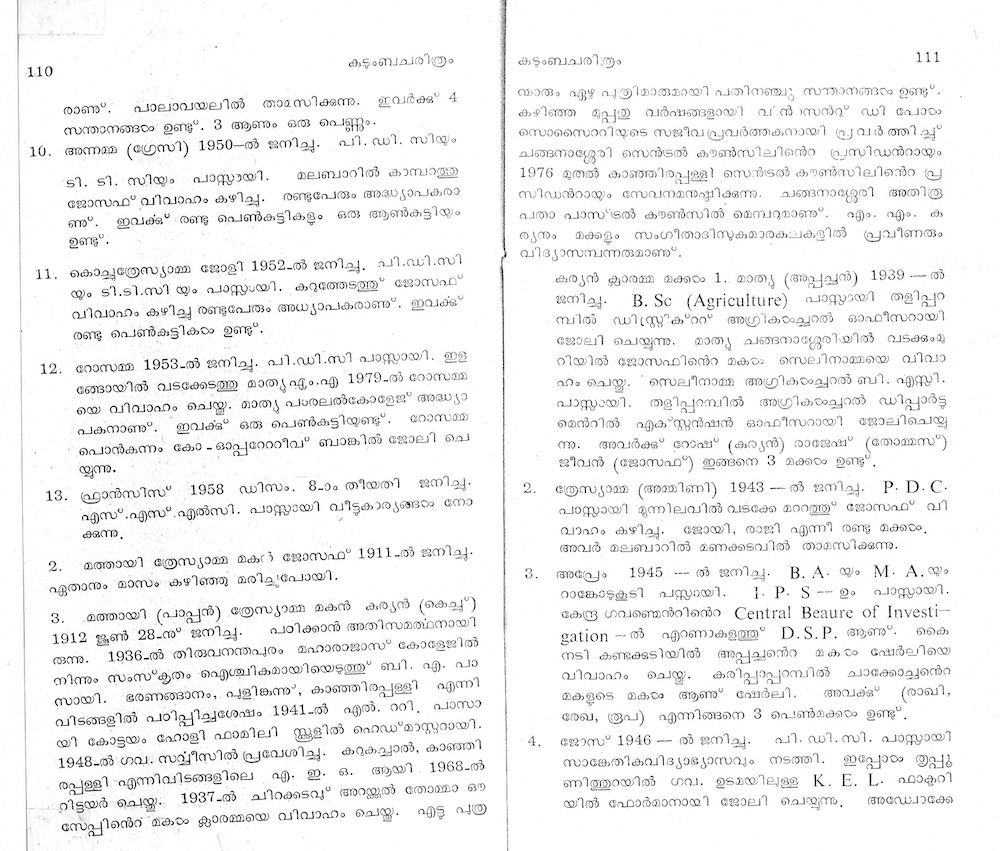 110
കുടുംബചരിത്രം
രാണു്. പാലാവയലിൽ താമസിക്കുന്നു. ഇവർക്കു് 4
സന്താനങ്ങൾ ഉണ്ടു്. 3 ആണും ഒരു പെണ്ണും.
10. അന്നമ്മ (ഗ്രേസി) 1950–ൽ ജനിച്ചു. പി. ഡി. സിയും
ടി. ടി. സിയും പാസ്സായി. മലബാറിൽ കാമ്പറത്തു
ജോസഫ് വിവാഹം കഴിച്ചു. രണ്ടുപേരും അദ്ധ്യാപകരാ
ണു്. ഇവക്കു് രണ്ടു പെൺകുട്ടികളും ഒരു ആൺകുട്ടിയും
ഉണ്ടു്.
11. കൊച്ചുത്രേസ്യാമ്മ ജോളി 1952-ൽ ജനിച്ചു. പി.ഡി.സി
യും ടി.ടി.സി യും പാസ്സായി. കുറുത്തേടത്തു് ജോസഫ്
വിവാഹം കഴിച്ചു രണ്ടുപേരും അധ്യാപകരാണു്. ഇവക്കു്
രണ്ടു പെൺകുട്ടികൾ ഉണ്ടു്.
12. റോസമ്മ 1953-ൽ ജനിച്ചു. പി.ഡി.സി പാസ്സായി. ഇള
ങ്ങോയിൽ വടക്കേടത്തു മാത്യു എം.എ 1979-ൽ റോസമ്മ
യെ വിവാഹം ചെയ്തു. മാത്യു പാരലൽകോളേജ് അദ്ധ്യാ
പകനാണു്. ഇവക്കു് ഒരു പെൺകുട്ടിയുണ്ടു്. റോസമ്മ
പൊൻകുന്നം കോ - ഓപ്പറേററീവു് ബാങ്കിൽ ജോലി ചെ
യ്യുന്നു.
13. ഫ്രാൻസിസ് 1958 ഡിസം. 8-ാം തീയതി ജനിച്ചു.
എസ്.എസ്.എൽസി. പാസ്സായി വീട്ടുകാര്യങ്ങൾ നോ
ക്കുന്നു.
2. മത്തായി ത്രേസ്യാമ്മ മകൻ ജോസഫ് 1911-ൽ ജനിച്ചു.
ഏതാനും മാസം കഴിഞ്ഞു മരിച്ചുപോയി.
3. മത്തായി (പാപ്പൻ) ത്രേസ്യാമ്മ മകൻ കുര്യൻ (കെച്ചു്)
1912 ജൂൺ 28-നു് ജനിച്ചു. പഠിക്കാൻ അതിസമത്ഥനായി
രുന്നു. 1936-ൽ തിരുവനന്തപുരം മഹാരാജാസ് കോളേജിൽ
നിന്നും സംസ്കൃതം ഐശ്ചികമായിയെടുത്തു് ബി. എ. പാ
സായി. ഭരണങ്ങാനം, പുളിങ്കുന്നു്, കാഞ്ഞിരപ്പള്ളി എന്നി
വിടങ്ങളിൽ പഠിപ്പിച്ചശേഷം 1941-ൽ എൽ. ററി. പാസാ
യി കോട്ടയം ഹോളി ഫാമിലി സ്കൂളിൽ ഹെഡ്മാസ്റ്ററായി.
1948-ൽ ഗവ. സർവ്വീസിൽ പ്രവേശിച്ചു. കുറുകച്ചാൽ, കാഞ്ഞി
രപ്പള്ളി എന്നിവിടങ്ങളിലെ എ. ഇ. ഒ. ആയി 1968-ൽ
റിട്ടയർ ചെയ്തു. 1937-ൽ ചിറക്കടവു് അറയ്ക്കൽ തോമ്മാ ഔ
സേപ്പിൻെറ മകൾ ക്ലാരമ്മയെ വിവാഹം ചെയ്തു. എട്ടു പുത്ര
കുടുംബചരിത്രം
111
ന്മാരും ഏഴു പുത്രിമാരുമായി പതിനഞ്ചു സന്താനങ്ങൾ ഉണ്ടു്.
കഴിഞ്ഞ മുപ്പതു വർഷങ്ങളായി വിൻസൻറു് ഡി പോൾ
സൊസൈററിയുടെ സജീവപ്രവർത്തകനായി പ്രവർത്തിച്ചു്
ചങ്ങനാശ്ശേരി സെൻട്രൽ കൗൺസിലിൻെറ പ്രസിഡൻറായും
1976 മുതൽ കാഞ്ഞിരപ്പള്ളി സെൻട്രൽ കൗൺസിലിൻെറ പ്ര
സിഡൻറായും സേവനമനുഷ്ഠിക്കുന്നു. ചങ്ങനാശ്ശേരി അതിരൂ
പതാ പാസ്ട്രൽ കൗൺസിൽ മെമ്പറുമാണു്. എം. എം. കു
ര്യനും മക്കളും സംഗീതാദിസുകുമാരകലകളിൽ പ്രവീണരും
വിദ്യാസമ്പന്നരുമാണു്.
കുര്യൻ ക്ലാരമ്മ മക്കൾ 1. മാത്യു (അപ്പച്ചൻ) 1939 — ൽ
ജനിച്ചു. B. Sc (Agriculture) പാസ്സായി തളിപ്പറ
മ്പിൽ ഡിസ്ട്രിക്ററ് അഗ്രികൾച്ചറൽ ഓഫീസറായി
ജോലി ചെയ്യുന്നു. മാത്യു ചങ്ങനാശ്ശേരിയിൽ വടക്കുംമു
റിയിൽ ജോസഫിൻെറ മകൾ സെലിനാമ്മയെ വിവാ
ഹം ചെയ്തു. സെലീനാമ്മ അഗ്രികൾച്ചറൽ ബി. എസ്സി.
പാസ്സായി. തളിപ്പറമ്പിൽ അഗ്രികൾച്ചറൽ ഡിപ്പാർട്ടു
മെൻറിൽ എക്സ്റ്റൻഷൻ ഓഫീസറായി ജോലിചെയ്യു
ന്നു. അവർക്കു് റോഷ് (കുര്യൻ) രാജേഷ് (തോമ്മസ്)
ജീവൻ (ജോസഫ്) ഇങ്ങനെ 3 മക്കൾ ഉണ്ടു്.
2. ത്രേസ്യാമ്മ (അമ്മിണി) 1943 — ൽ ജനിച്ചു. P. D. C.
പാസ്സായി മുന്നിലവിൽ വടക്കേ മററത്തു് ജോസഫ് വി
വാഹം കഴിച്ചു. ജോയി, രാജി എന്നീ രണ്ടു മക്കൾ.
അവർ മലബാറിൽ മണക്കടവിൽ താമസിക്കുന്നു.
3. അപ്രേം 1945 — ൽ ജനിച്ചു. B. A. യും M. A.യും
റാങ്കോടുകൂടി പസ്സായി. I. P. S — ഉം പാസ്സായി.
കേന്ദ്ര ഗവണ്മെൻറിൻെറ Central Beaure of Investi-
gation — ൽ എറണാകുളത്തു് D. S. P. ആണു്. കൈ
നടി കണ്ടക്കുടിയിൽ അപ്പച്ചൻെറ മകൾ ഷേർലിയെ
വിവാഹം ചെയ്തു. കരിപ്പാപ്പറമ്പിൽ ചാക്കോച്ചൻെറ
മകളുടെ മകൾ ആണു് ഷേർലി. അവക്കു് (രാഖി,
രേഖ, രൂപ) എന്നിങ്ങനെ 3 പെൺമക്കൾ ഉണ്ടു്.
4. ജോസ് 1946 — ൽ ജനിച്ചു. പി. ഡി. സി. പാസ്സായി
സാങ്കേതികവിദ്യാഭ്യാസവും നടത്തി. ഇപ്പോൾ തൃപ്പൂ
ണിത്തുറയിൽ ഗവ. ഉടമയിലുള്ള K. E. L. ഫാക്ടറി
യിൽ ഫോർമാനായി ജോലി ചെയ്യുന്നു. അഡ്വോക്കേ